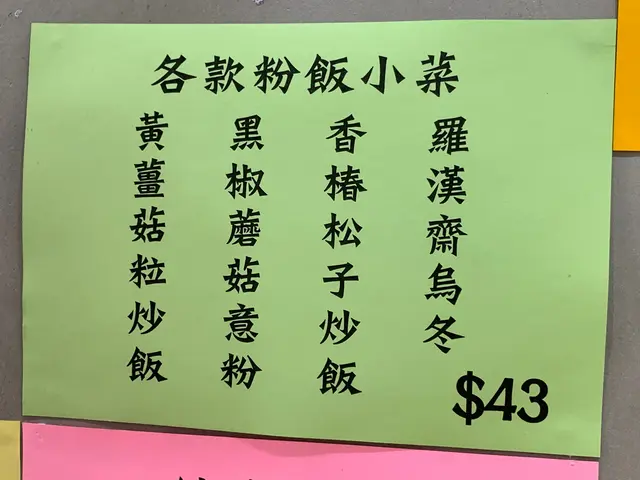 各款粉飯小菜
羅漢齋烏冬
香椿松子炒飯
黑椒蘑菇意粉
黃薑菇粒炒飯
$43